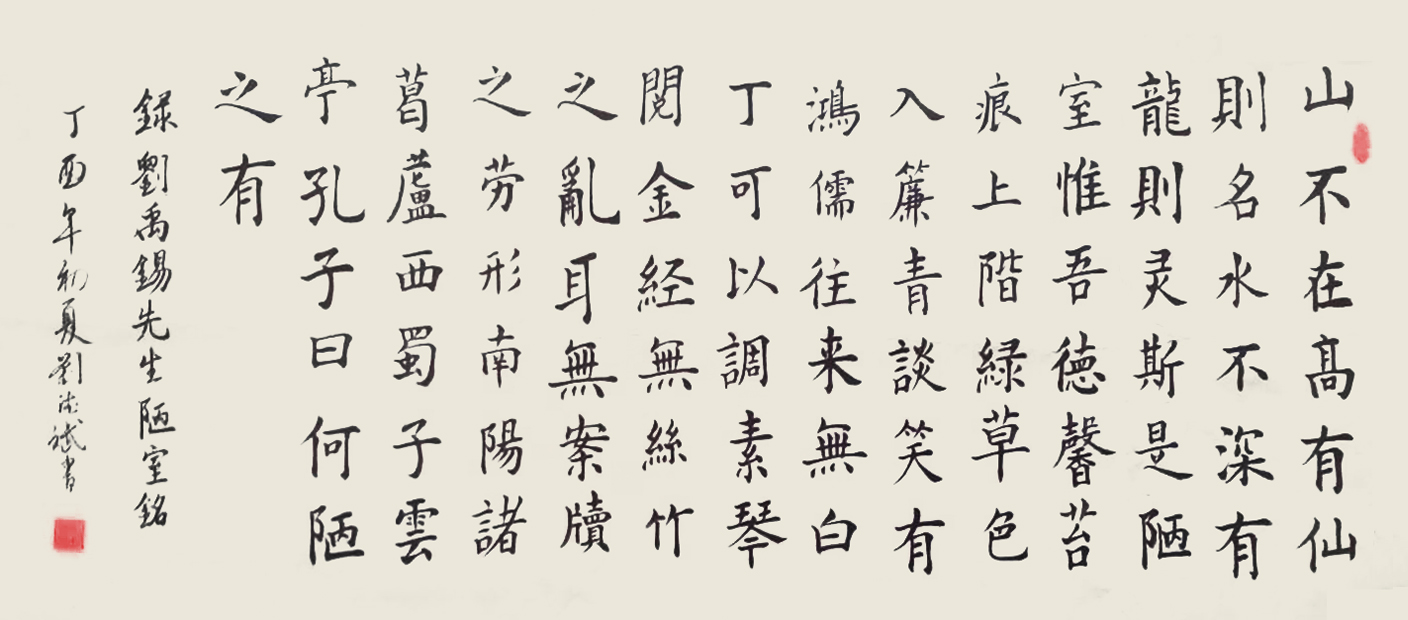 山不在高有仙
則名水不深有
龍則灵斯是陋
室惟吾德馨苔
痕上階緑草色
入簾青談笑有
鴻儒往来無白
丁可以調素琴
閱金经無絲竹
之亂耳無案牘
之劳形南陽諸
葛蘆西蜀子雲
亭孔子曰何陋
之有
録劉禹錫先生陋室銘
丁酉年初夏劉德斌書